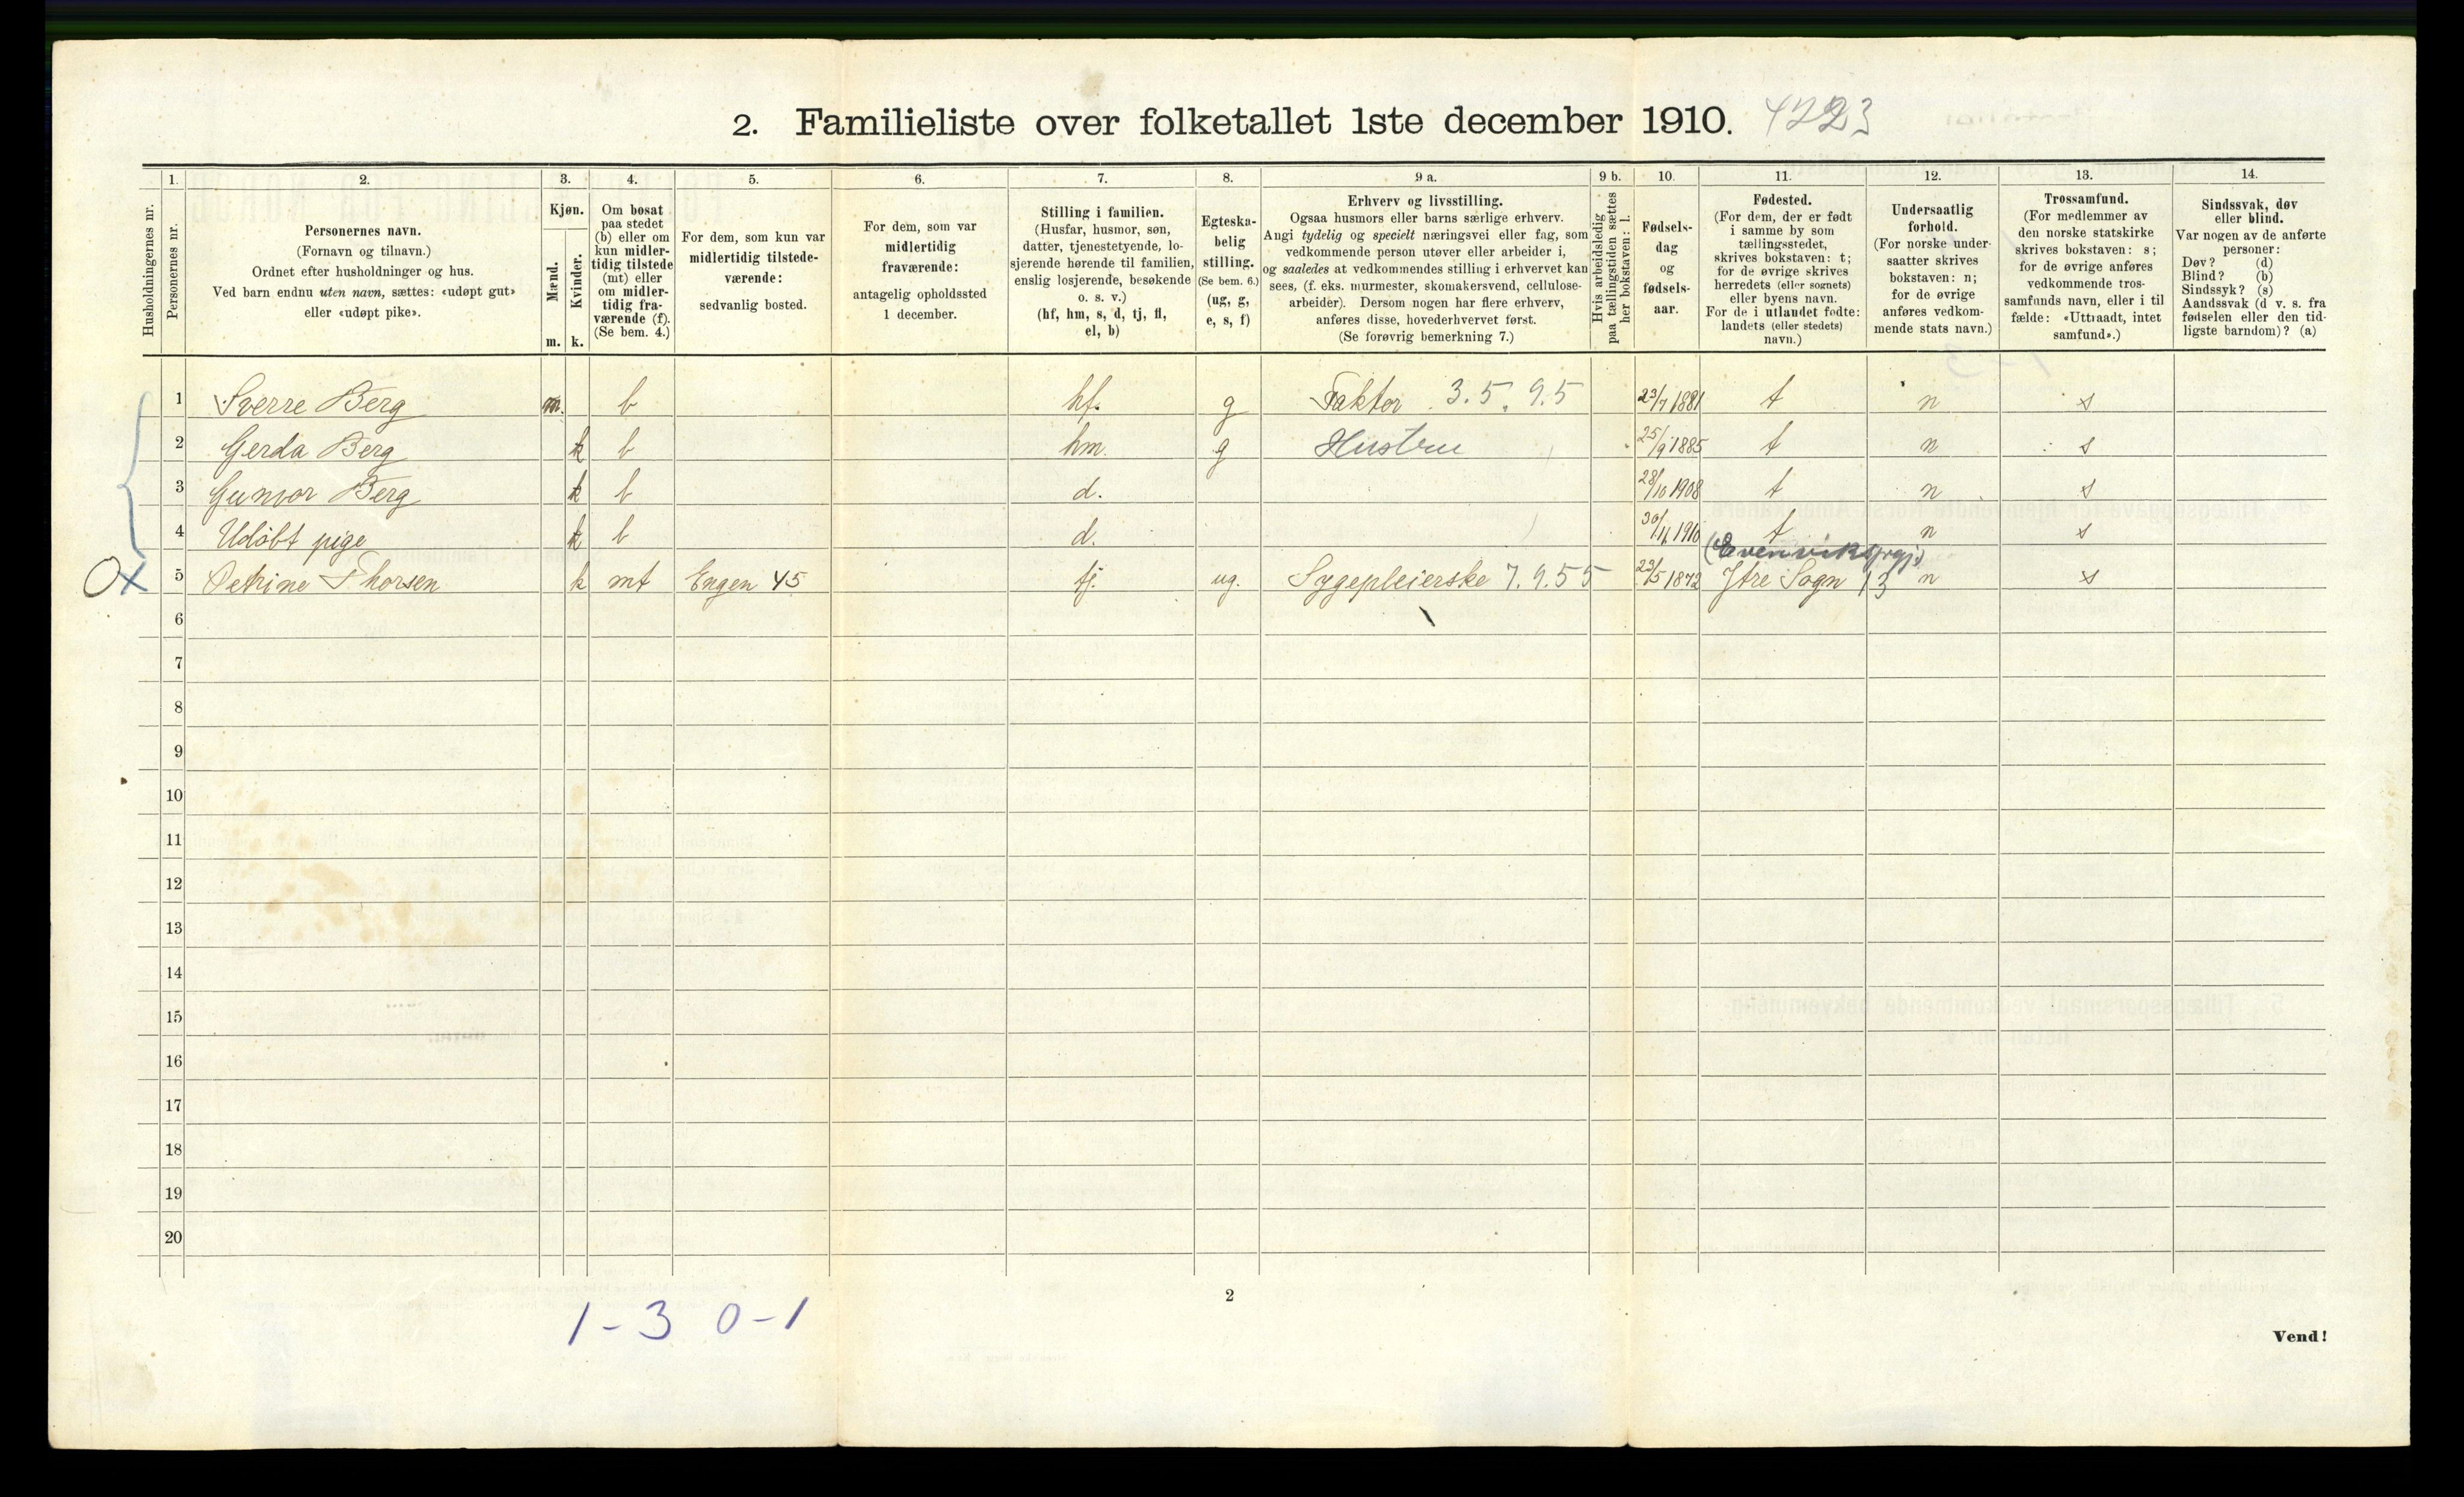 2. Familieliste over folketallet 1ste december 1910. 4223
1. 2. 3. 4. 5. 6. 7. 8. 9 a. 9 b. 10. 11. 12. 13. 14.
Husholdningernes nr.
Personernes nr.
Personernes navn.
(Fornavn og tilnavn.)
Ordnet efter husholdninger og hus.
Ved barn endnu uten navn, sættes: «udøpt gut»
eller «udøpt pike».
Kjøn.
Mænd.
Kvinder.
m. k.
Om bosat
paa stedet
(b) eller om
kun midler-
tidig tilstede
(mt) eller
om midler-
tidig fra-
værende (f).
(Se bem. 4.)
For dem, som kun var
midlertidig tilstede-
værende:
sedvanlig bosted.
For dem, som var
midlertidig
fraværende:
antagelig opholdssted
1 december.
Stilling i familien.
(Husfar, husmor, søn,
datter, tjenestetyende, lo-
sjerende hørende til familien,
enslig losjerende, besøkende
o. s. v.)
(hf, hm, s, d, tj, fl,
el, b)
Egteska-
belig
stilling.
(Se bem. 6.)
(ug, g,
e, s, f)
Erhverv og livsstilling.
Ogsaa husmors eller barns særlige erhverv.
Angi tydelig og specielt næringsvei eller fag, som
vedkommende person utøver eller arbeider i,
og saaledes at vedkommendes stilling i erhvervet kan
sees, (f. eks. murmester, skomakersvend, cellulose-
arbeider). Dersom nogen har flere erhverv,
anføres disse, hovederhvervet først.
(Se forøvrig bemerkning 7.)
Hvis arbeidsledig
paa tællingstiden sættes
her bokstaven: l.
Fødsels-
dag
og
fødsels-
aar.
Fødested.
(For dem, der er født
i samme by som
tællingsstedet,
skrives bokstaven: t;
for de øvrige skrives
herredets (eller sognets)
eller byens navn.
For de i utlandet fødte:
landets (eller stedets)
navn.)
Undersaatlig
forhold.
(For norske under-
saatter skrives
bokstaven: n;
for de øvrige
anføres vedkom-
mende stats navn.)
Trossamfund.
(For medlemmer av
den norske statskirke
skrives bokstaven: s;
for de øvrige anføres
vedkommende tros-
samfunds navn, eller i til
fælde: «Uttraadt, intet
samfund».)
Sindssvak, døv
eller blind.
Var nogen av de anførte
personer:
Døv? (d)
Blind? (b)
Sindssyk? (s)
Aandssvak (d v. s. fra
fødselen eller den tid-
ligste barndom)? (a)
1 Sverre Berg m. b hf. g Faktor 3.5.9.5 23/7 1881 t n s
2 Gerda Berg k b hm. g Hustru 25/9 1885 t n s
3 Gunvor Berg k b d. 28/10 1908 t n s
4 Udøbt pige k b d. 30/11 1910 t n s
(Evenvik prgj)
OX 5 Petrine Thorsen k mt Engen 45 tj. ug. Sygepleierske 7.9.55 23/5 1872 Ytre Sogn 13 n s
6
7
8
9
10
11
12
13
14
15
16
17
18
19
20
2
1-3 0-1
Vend!